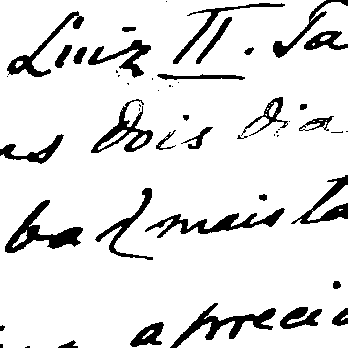 Luiz II. Ta
as dois dia
ba mais ta
aprecia